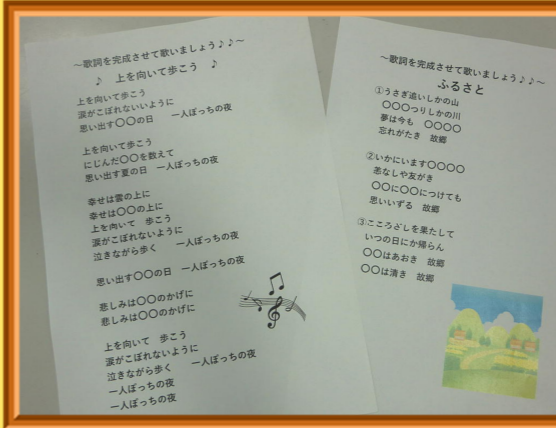 ～歌詞を完成させて歌いましょう♪♪～
♪ 上を向いて歩こう ♪
上を向いて歩こう
涙がこぼれないいように
思い出す〇〇の日 一人ぼっちの夜
上を向いて歩こう
にじんだ〇〇を数えて
思い出す夏の日 一人ぼっちの夜
幸せは雲の上に
幸せは〇〇の上に
上を向いて 歩こう
涙がこぼれないように
泣きながら歩く 一人ぼっちの夜
思い出す〇〇の日 一人ぼっちの夜
悲しみは〇〇のかげに
悲しみは〇〇のかげに
上を向いて 歩こう
涙がこぼれないように
泣きながら歩く 一人ぼっちの夜
一人ぼっちの夜
一人ぼっちの夜
～歌詞を完成させて歌いましょう♪♪～
ふるさと
①うさぎ追いしかの山
〇〇〇つりしかの川
夢は今も 〇〇〇〇
忘れがたき 故郷
②いかにいます〇〇〇〇
恙なしや友がき
〇〇に〇〇につけても
思いいずる 故郷
③こころざしを果たして
いつの日にか帰らん
〇〇はあおき 故郷
〇〇は清き 故郷